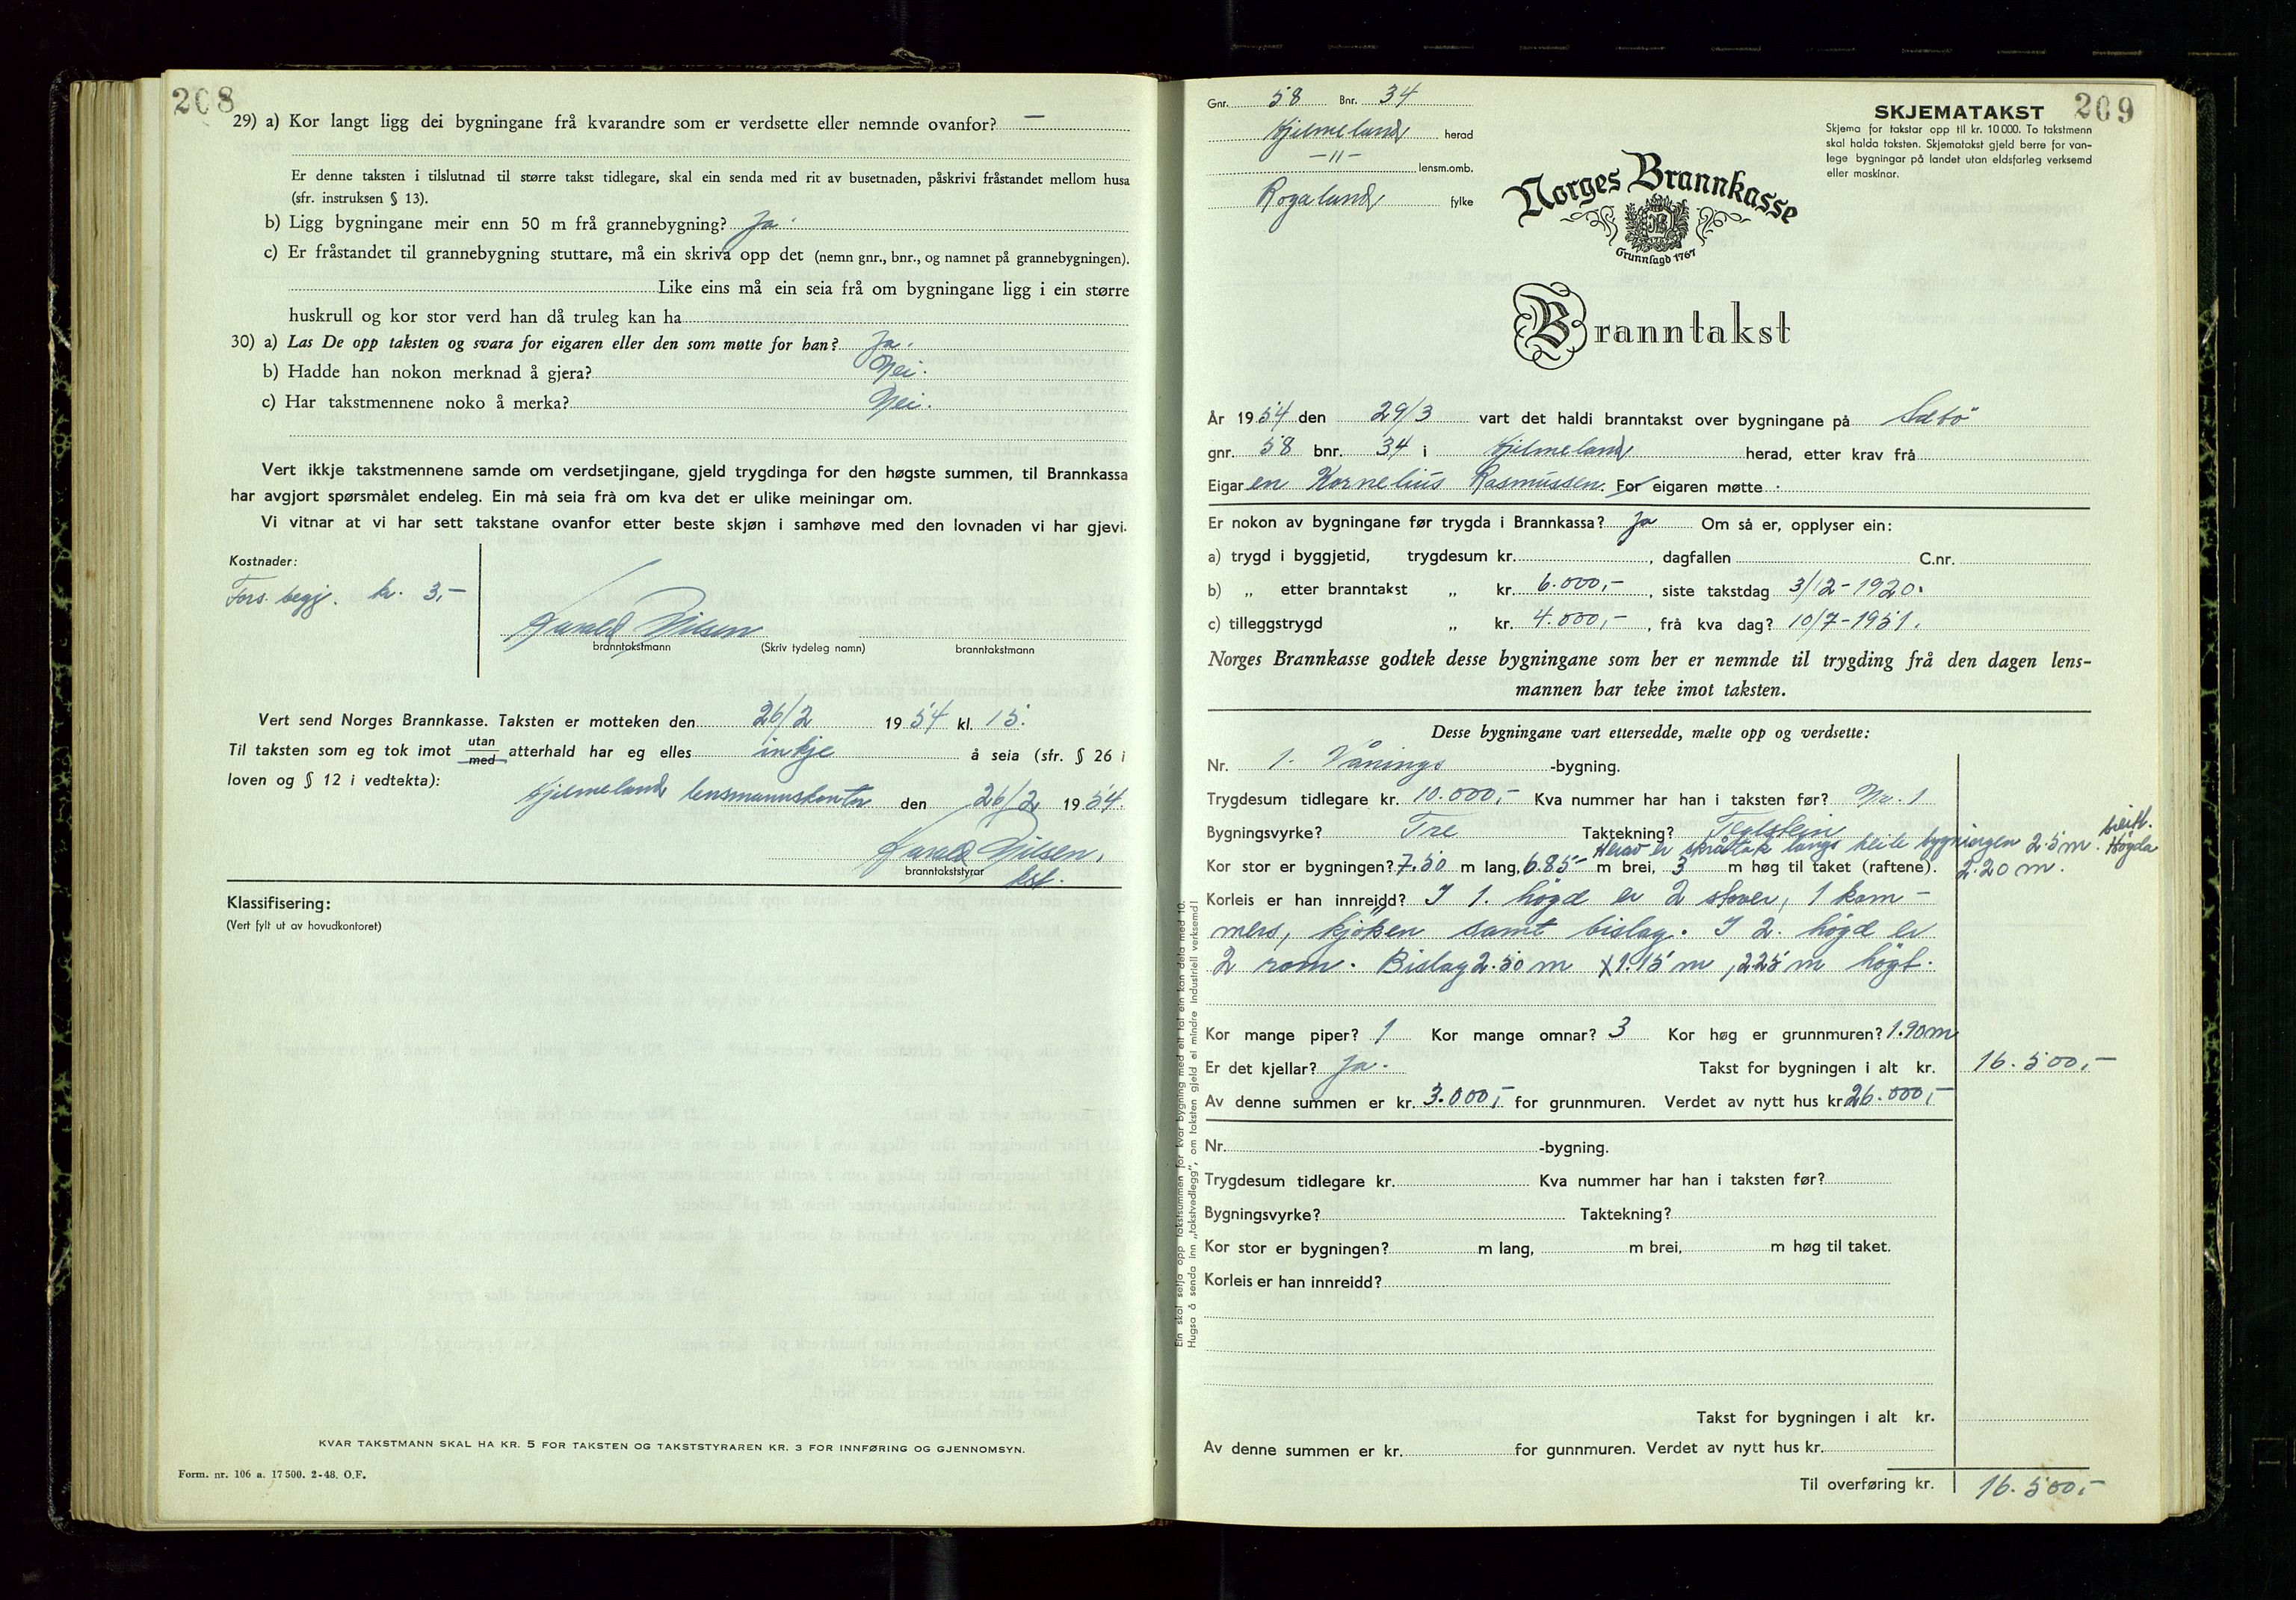 208
29) a) Kor langt ligg dei bygningane frå kvarandre som er verdsette eller nemnde ovanfor? —
Er denne taksten i tilslutnad til større takst tidlegare, skal ein senda med rit av busetnaden, påskrivi fråstandet mellom husa
(sfr. instruksen § 13).
b) Ligg bygningane meir enn 50 m frå grannebygning? Ja.
c) Er fråstandet til grannebygning stuttare, må ein skriva opp det (nemn gnr., bnr., og namnet på grannebygningen).
Like eins må ein seia frå om bygningane ligg i ein større
huskrull og kor stor verd han då truleg kan ha
30) a) Las De opp taksten og svara for eigaren eller den som møtte for han? Ja.
b) Hadde han nokon merknad å gjera? Nei.
c) Har takstmennene noko å merka? Nei.
Vert ikkje takstmennene samde om verdsetjingane, gjeld trygdinga for den høgste summen, til Brannkassa
har avgjort spørsmålet endeleg. Ein må seia frå om kva det er ulike meiningar om.
Vi vitnar at vi har sett takstane ovanfor etter beste skjøn i samhøve med den lovnaden vi har gjevi.
Kostnader:
Fors. begj. kr. 3,-
Harald Nilsen
branntakstmann (Skriv tydeleg namn) branntakstmann
Vert send Norges Brannkasse. Taksten er motteken den 26/2 1954 kl. 15.
Til taksten som eg tok imot utan/med atterhald har eg elles inkje å seia (sfr. § 26 i
loven og § 12 i vedtekta):
Hjelmeland lensmannskontor den 26/2 1954.
Harald Nilsen,
branntakststyrar
kst.
Klassifisering:
(Vert fylt ut av hovudkontoret)
KVAR TAKSTMANN SKAL HA KR. 5 FOR TAKSTEN OG TAKSTSTYRAREN KR. 3 FOR INNFØRING OG GJENNOMSYN.
Form. nr. 106 a. 17 500. 2-48. O.F.
209
Gnr. 58 Bnr. 34
Hjelmeland herad
—"— lensm.omb.
Rogaland fylke
SKJEMATAKST
Skjema for takstar opp til kr. 10 000. To takstmenn
skal halda taksten. Skjematakst gjeld berre for van-
lege bygningar på landet utan eldsfarleg verksemd
eller maskinar.
Norges Brannkasse
Grunnlagd 1767
Branntakst
År 1954 den 29/3 vart det haldi branntakst over bygningane på Sæbö
gnr. 58 bnr. 34 i Hjelmeland herad, etter krav frå
Eigaren Kornelius Rasmussen. For eigaren møtte
Er nokon av bygningane før trygda i Brannkassa? Ja Om så er, opplyser ein:
a) trygd i byggjetid, trygdesum kr. , dagfallen C.nr.
b) „ etter branntakst „ kr. 6.000,- , siste takstdag 3/12-1920.
c) tilleggstrygd „ kr. 4.000,- , frå kva dag? 10/7-1951.
Norges Brannkasse godtek desse bygningane som her er nemnde til trygding frå den dagen lens-
mannen har teke imot taksten.
Desse bygningane vart ettersedde, mælte opp og verdsette:
Nr. 1. Vånings -bygning.
Trygdesum tidlegare kr. 10.000,- Kva nummer har han i taksten før? Nr. 1
Bygningsvyrke? Tre Taktekning? Teglstein
er skråtak langs heile bygningen 2.5 m breitt. Høgda
Kor stor er bygningen? 7.50 m lang, 6.85 m brei, 3 m høg til taket (raftene). 2.20 m.
Korleis er han innreidd? I 1. högd er 2 stover, 1 kam-
mers, kjöken samt bislag. I 2. högd er
2 rom. Bislag 2.50 m x 1.15 m, 2.25 m högt.
Kor mange piper? 1 Kor mange omnar? 3 Kor høg er grunnmuren? 1.90 m
Er det kjellar? Ja. Takst for bygningen i alt kr. 16.500,-
Av denne summen er kr. 3.000,- for grunnmuren. Verdet av nytt hus kr. 26.000,-
Nr. -bygning.
Trygdesum tidlegare kr. Kva nummer har han i taksten før?
Bygningsvyrke? Taktekning?
Kor stor er bygningen? m lang, m brei, m høg til taket.
Korleis er han innreidd?
Takst for bygningen i alt kr.
Av denne summen er kr. for gunnmuren. Verdet av nytt hus kr.
Til overføring kr. 16.500,-
Ein skal setja opp takstsummen for kvar bygning med eit tal ein kan dela med 10.
Hugsa å senda inn „takstvedlegg", om taksten gjeld ei mindre industriell verksemd!